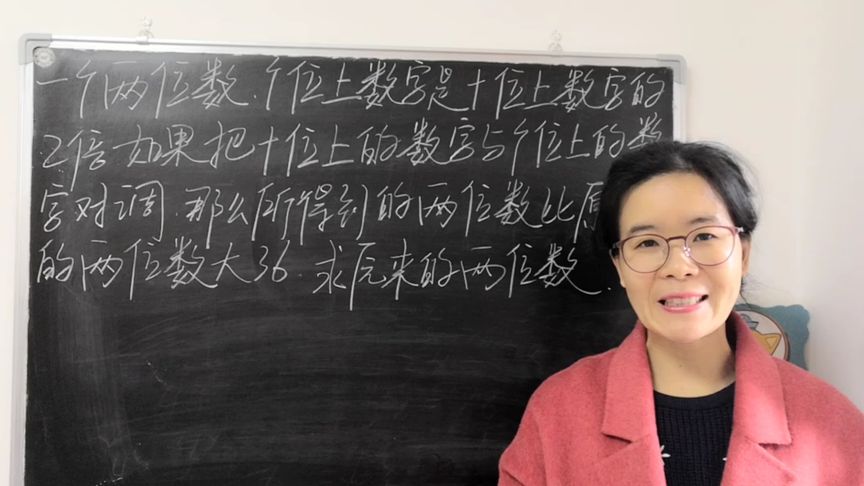 一个两位数.个位上数字是十位上数字的
2倍如果把十位上的数字与个位上的数
字对调.那么所得到的两位数比原
的两位数大36.求原来的两位数.